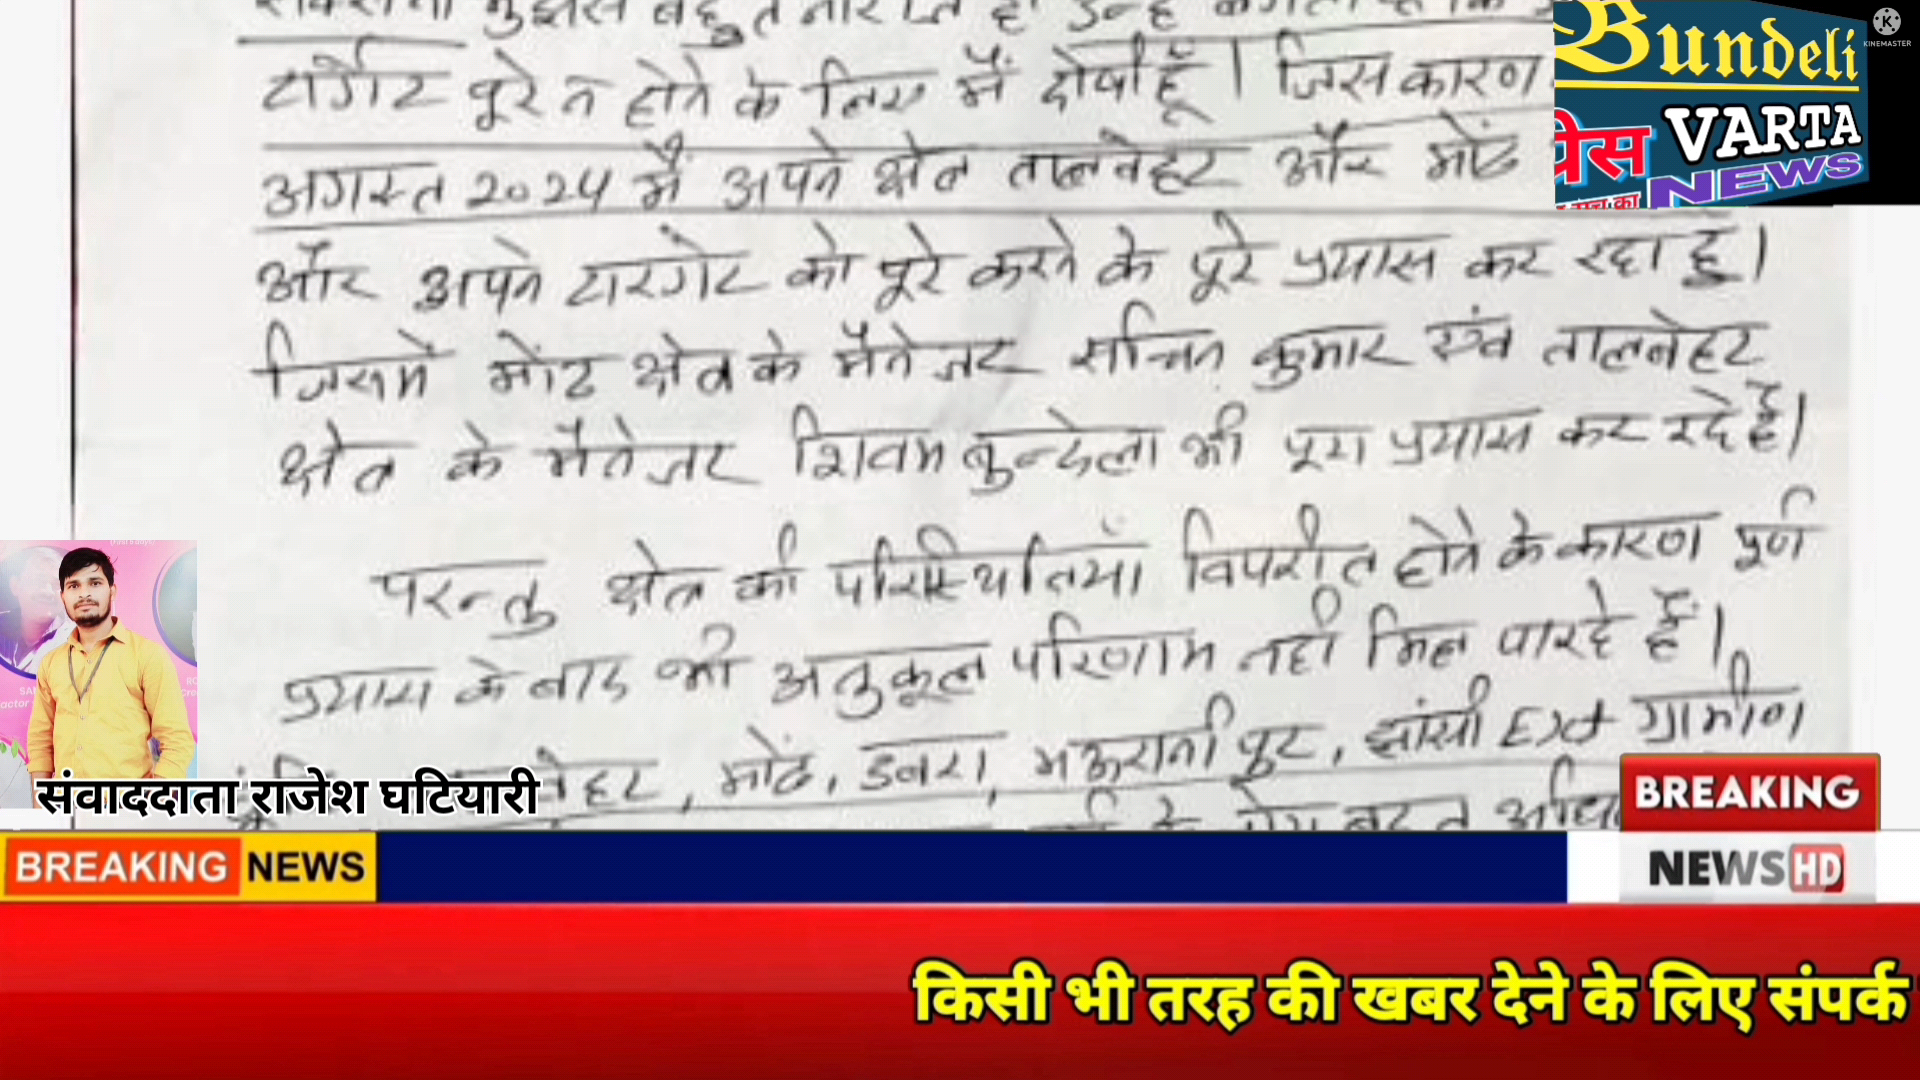 टार्गेट पूरे न होने के लिए मैं दोषी हूँ। जिस कारण
अगस्त 2024 में अपने क्षेत्र तालबेहट और मोंठ
और अपने टारगेट को पूरे करने के पूरे प्रयास कर रहा हूं।
जिसमें मोंठ क्षेत्र के मैनेजर सचिन कुमार एवं तालबेहट
क्षेत्र के मैनेजर शिवम बुन्देला भी पूरा प्रयास कर रहे हैं।
परन्तु क्षेत्र की परिस्थितियां विपरीत होने के कारण पूर्ण
प्रयास के बाद भी अनुकूल परिणाम नहीं मिल पा रहे हैं।
मोंठ, डबरा, मऊरानीपुर, झांसी Ext ग्रामीण
Bundeli
VARTA
NEWS
KINEMASTER
संवाददाता राजेश घटियारी
BREAKING NEWS
BREAKING
NEWS HD
किसी भी तरह की खबर देने के लिए संपर्क